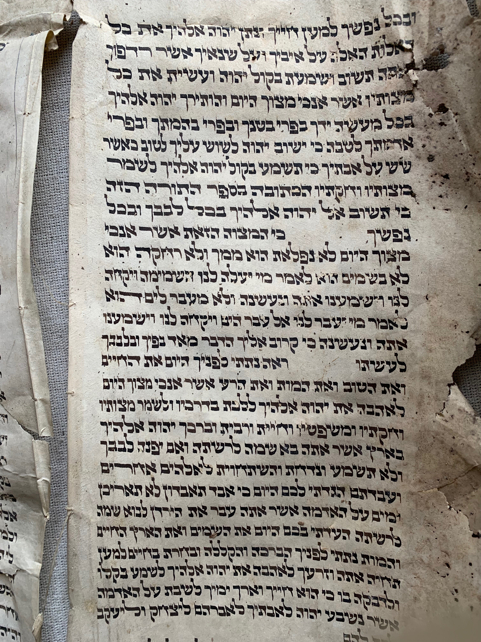 ובכל נפשך למען חייך ונתן יהוה אלהיך את כל
האלות האלה על איביך ועל שנאיך אשר רדפוך
ואתה תשוב ושמעת בקול יהוה ועשית את כל
מצותיו אשר אנכי מצוך היום והותירך יהוה אלהיך
בכל מעשה ידך בפרי בטנך ובפרי בהמתך ובפרי
אדמתך לטבה כי ישוב יהוה לשוש עליך לטוב כאשר
שש על אבתיך כי תשמע בקול יהוה אלהיך לשמר
מצותיו וחקתיו הכתובה בספר התורה הזה
כי תשוב אל יהוה אלהיך בכל לבבך ובכל
נפשך כי המצוה הזאת אשר אנכי
מצוך היום לא נפלאת הוא ממך ולא רחקה הוא
לא בשמים הוא לאמר מי יעלה לנו השמימה ויקחה
לנו וישמענו אתה ונעשנה ולא מעבר לים הוא
לאמר מי יעבר לנו אל עבר הים ויקחה לנו וישמענו
אתה ונעשנה כי קרוב אליך הדבר מאד בפיך ובלבבך
לעשתו ראה נתתי לפניך היום את החיים
ואת הטוב ואת המות ואת הרע אשר אנכי מצוך היום
לאהבה את יהוה אלהיך ללכת בדרכיו ולשמר מצותיו
וחקתיו ומשפטיו וחיית ורבית וברכך יהוה אלהיך
בארץ אשר אתה בא שמה לרשתה ואם יפנה לבבך
ולא תשמע ונדחת והשתחוית לאלהים אחרים
ועבדתם הגדתי לכם היום כי אבד תאבדון לא תאריכן
ימים על האדמה אשר אתה עבר את הירדן לבוא שמה
לרשתה העידתי בכם היום את השמים ואת הארץ החיים
והמות נתתי לפניך הברכה והקללה ובחרת בחיים למען
תחיה אתה וזרעך לאהבה את יהוה אלהיך לשמע בקלו
ולדבקה בו כי הוא חייך וארך ימיך לשבת על האדמה
אשר נשבע יהוה לאבתיך לאברהם ליצחק וליעקב
להם